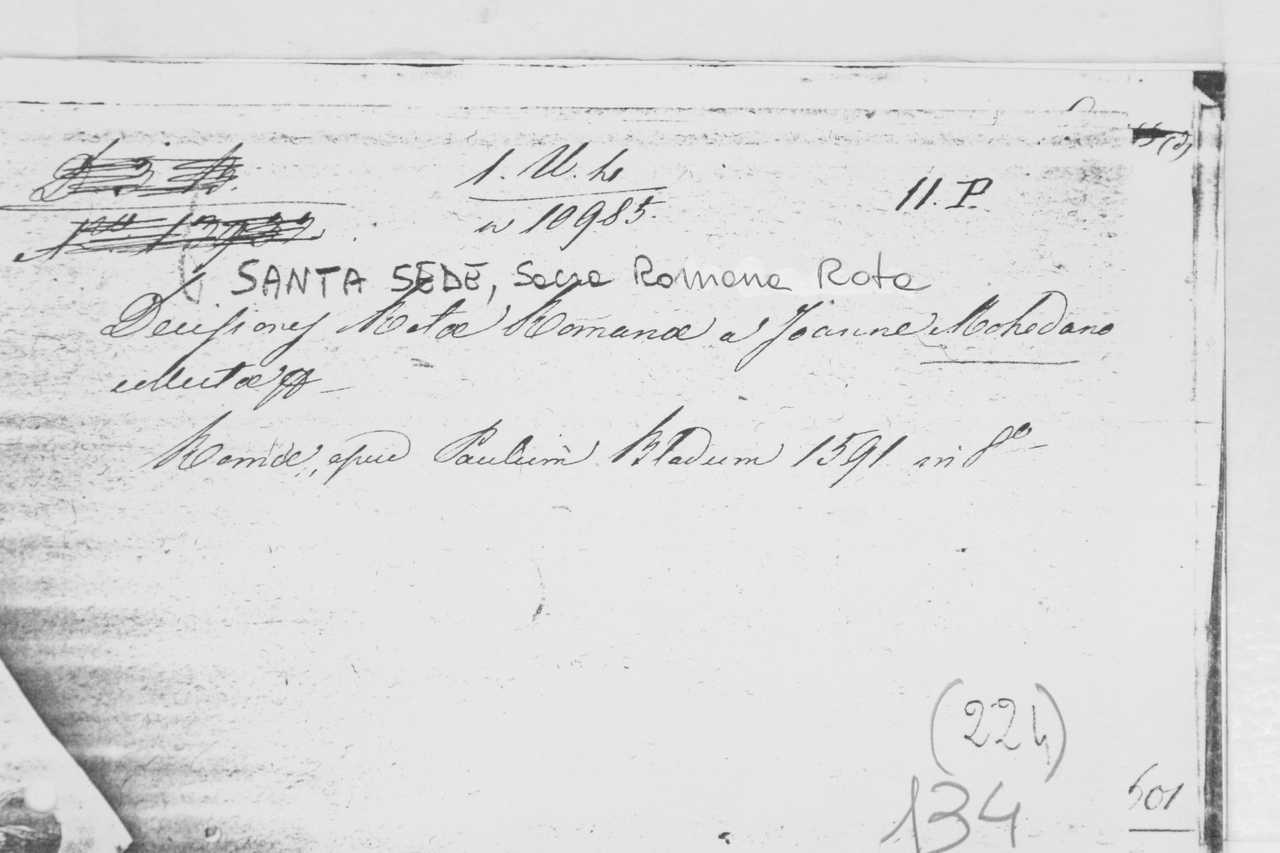 11. P.
10985
SANTA SEDE, Sacra Romana Rota
Decisiones Rotæ Romanæ a Joanne Mohedano
collectæ
Romæ, apud Paulum Bladum 1591 in 8º
(224)
134
601